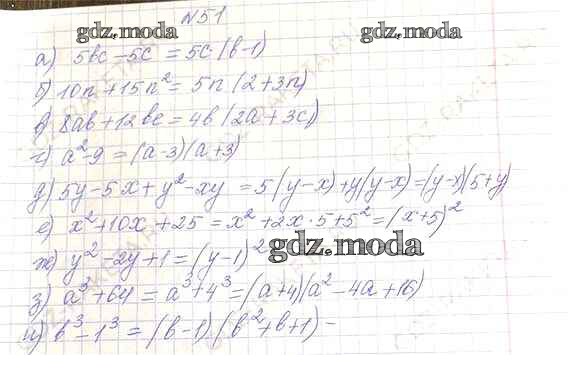 №51
gdz.moda gdz.moda
а) 5bc - 5c = 5c (b-1)
б) 10n + 15n² = 5n (2+3n)
в) 8ab + 12bc = 4b (2a + 3c)
г) a² - 9 = (a-3)(a+3)
д) 5y - 5x + y² - xy = 5(y-x)+y(y-x)=(y-x)(5+y)
е) x² + 10x + 25 = x² + 2x·5 + 5² = (x+5)²
ж) y² - 2y + 1 = (y-1)²
gdz.moda
з) a³ + 64 = a³ + 4³ = (a+4)(a² - 4a + 16)
и) b³ - 1³ = (b-1)(b² + b + 1) -